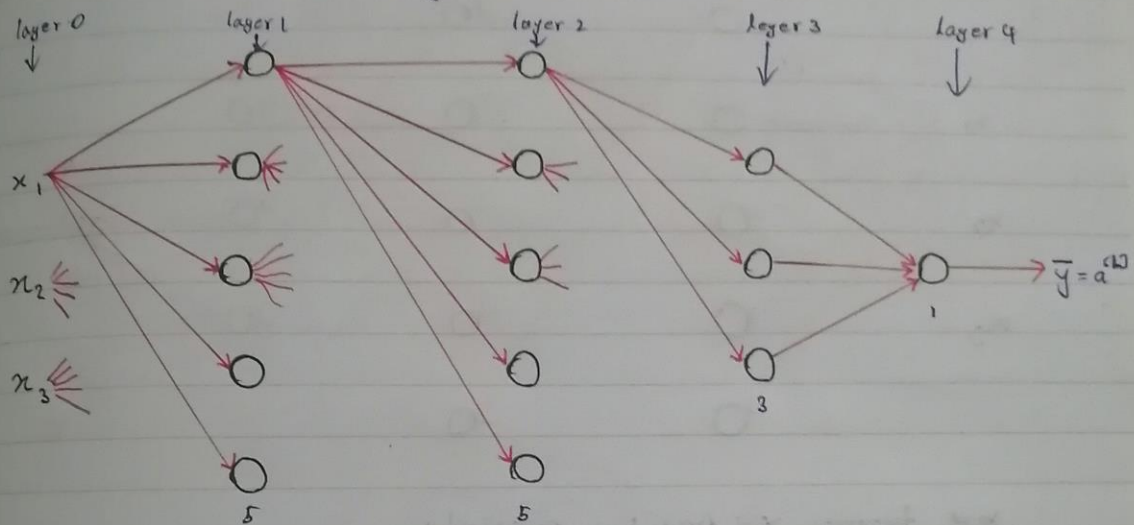 layer 0 layer 1 layer 2 leyer 3 layer 4
x1
x2
x3
ȳ = a[L]
1
3
5 5